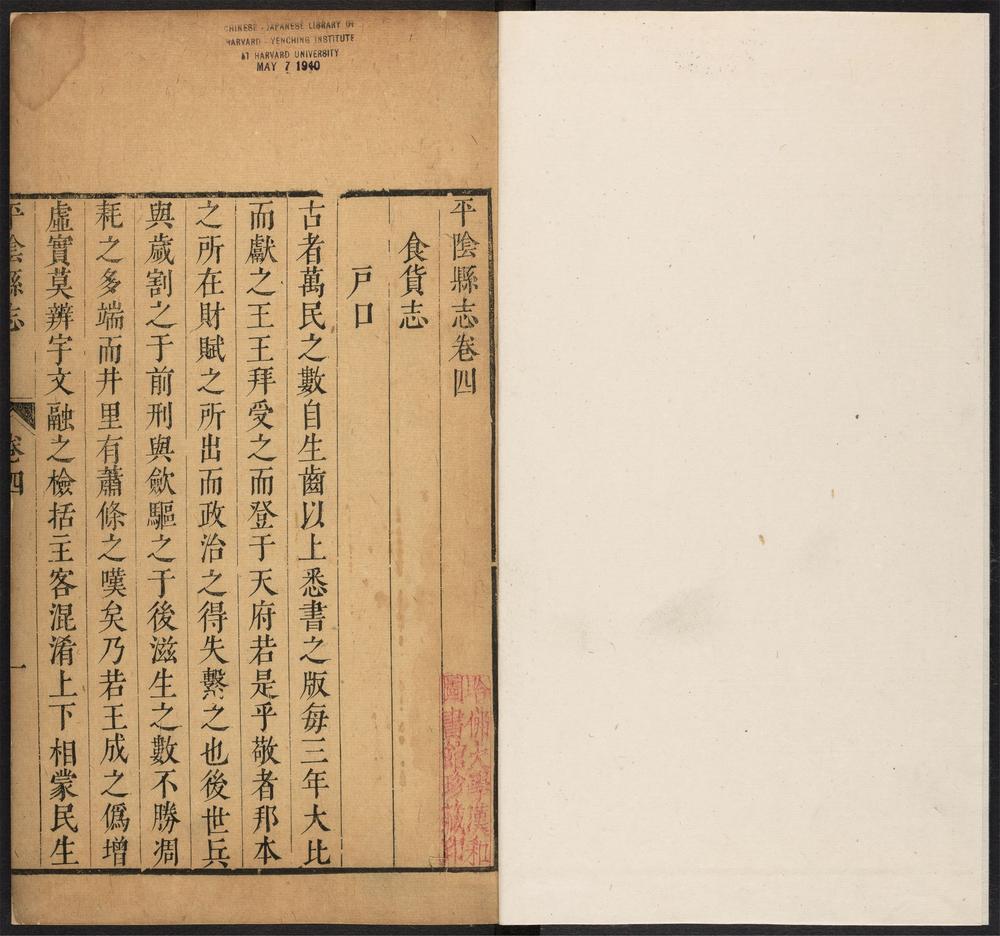 CHINESE - JAPANESE LIBRARY OF
HARVARD - YENCHING INSTITUTE
AT HARVARD UNIVERSITY
MAY 7 1940
平陰縣志卷四
食貨志
戸口
古者萬民之數自生齒以上悉書之版每三年大比
而獻之王王拜受之而登于天府若是乎敬者邦本
之所在財賦之所出而政治之得失繫之也後世兵
與歲割之于前刑與歛驅之于後滋生之數不勝凋
耗之多端而井里有蕭條之嘆矣乃若王成之僞增
虛實莫辨宇文融之檢括主客混淆上下相蒙民生
平陰縣志
卷四
一
哈佛大學漢和
圖書館珍藏印